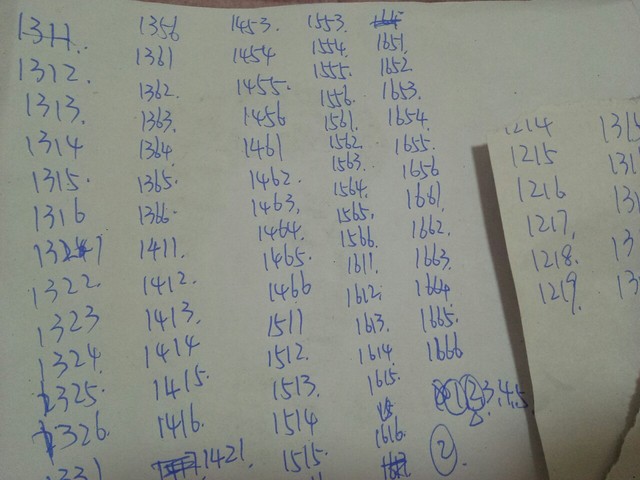 1311.
1312.
1313.
1314
1315.
1316
1321
1322.
1323
1324.
1325.
1326.
1331
1356
1361
1362.
1363.
1364.
1365.
1366.
1411.
1412.
1413.
1414
1415.
1416.
1421.
1453.
1454
1455.
1456
1461
1462.
1463.
1464.
1465.
1466
1511
1512.
1513.
1514
1515.
1553.
1554.
1555.
1556.
1561.
1562
1563.
1564.
1565.
1566.
1611.
1612.
1613.
1614
1615.
1616.
1651.
1652.
1653.
1654.
1655.
1656
1661
1662.
1663.
1664
1665.
1666
1 2 3.4.5.
2.
1214
1215
1216
1217.
1218.
1219.